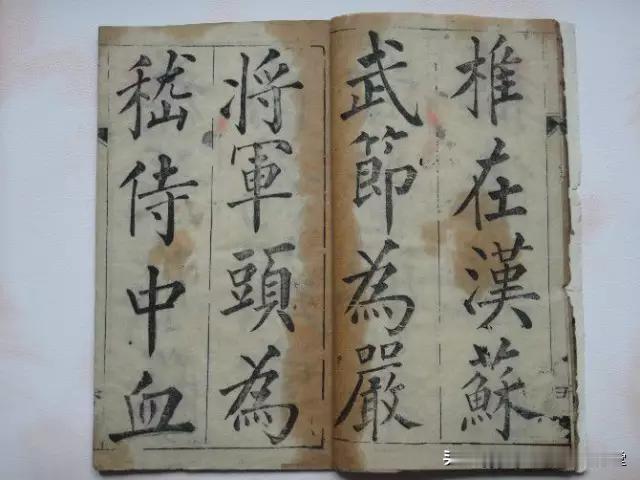 椎在漢蘇
武節為嚴
將軍頭為
嵇侍中血